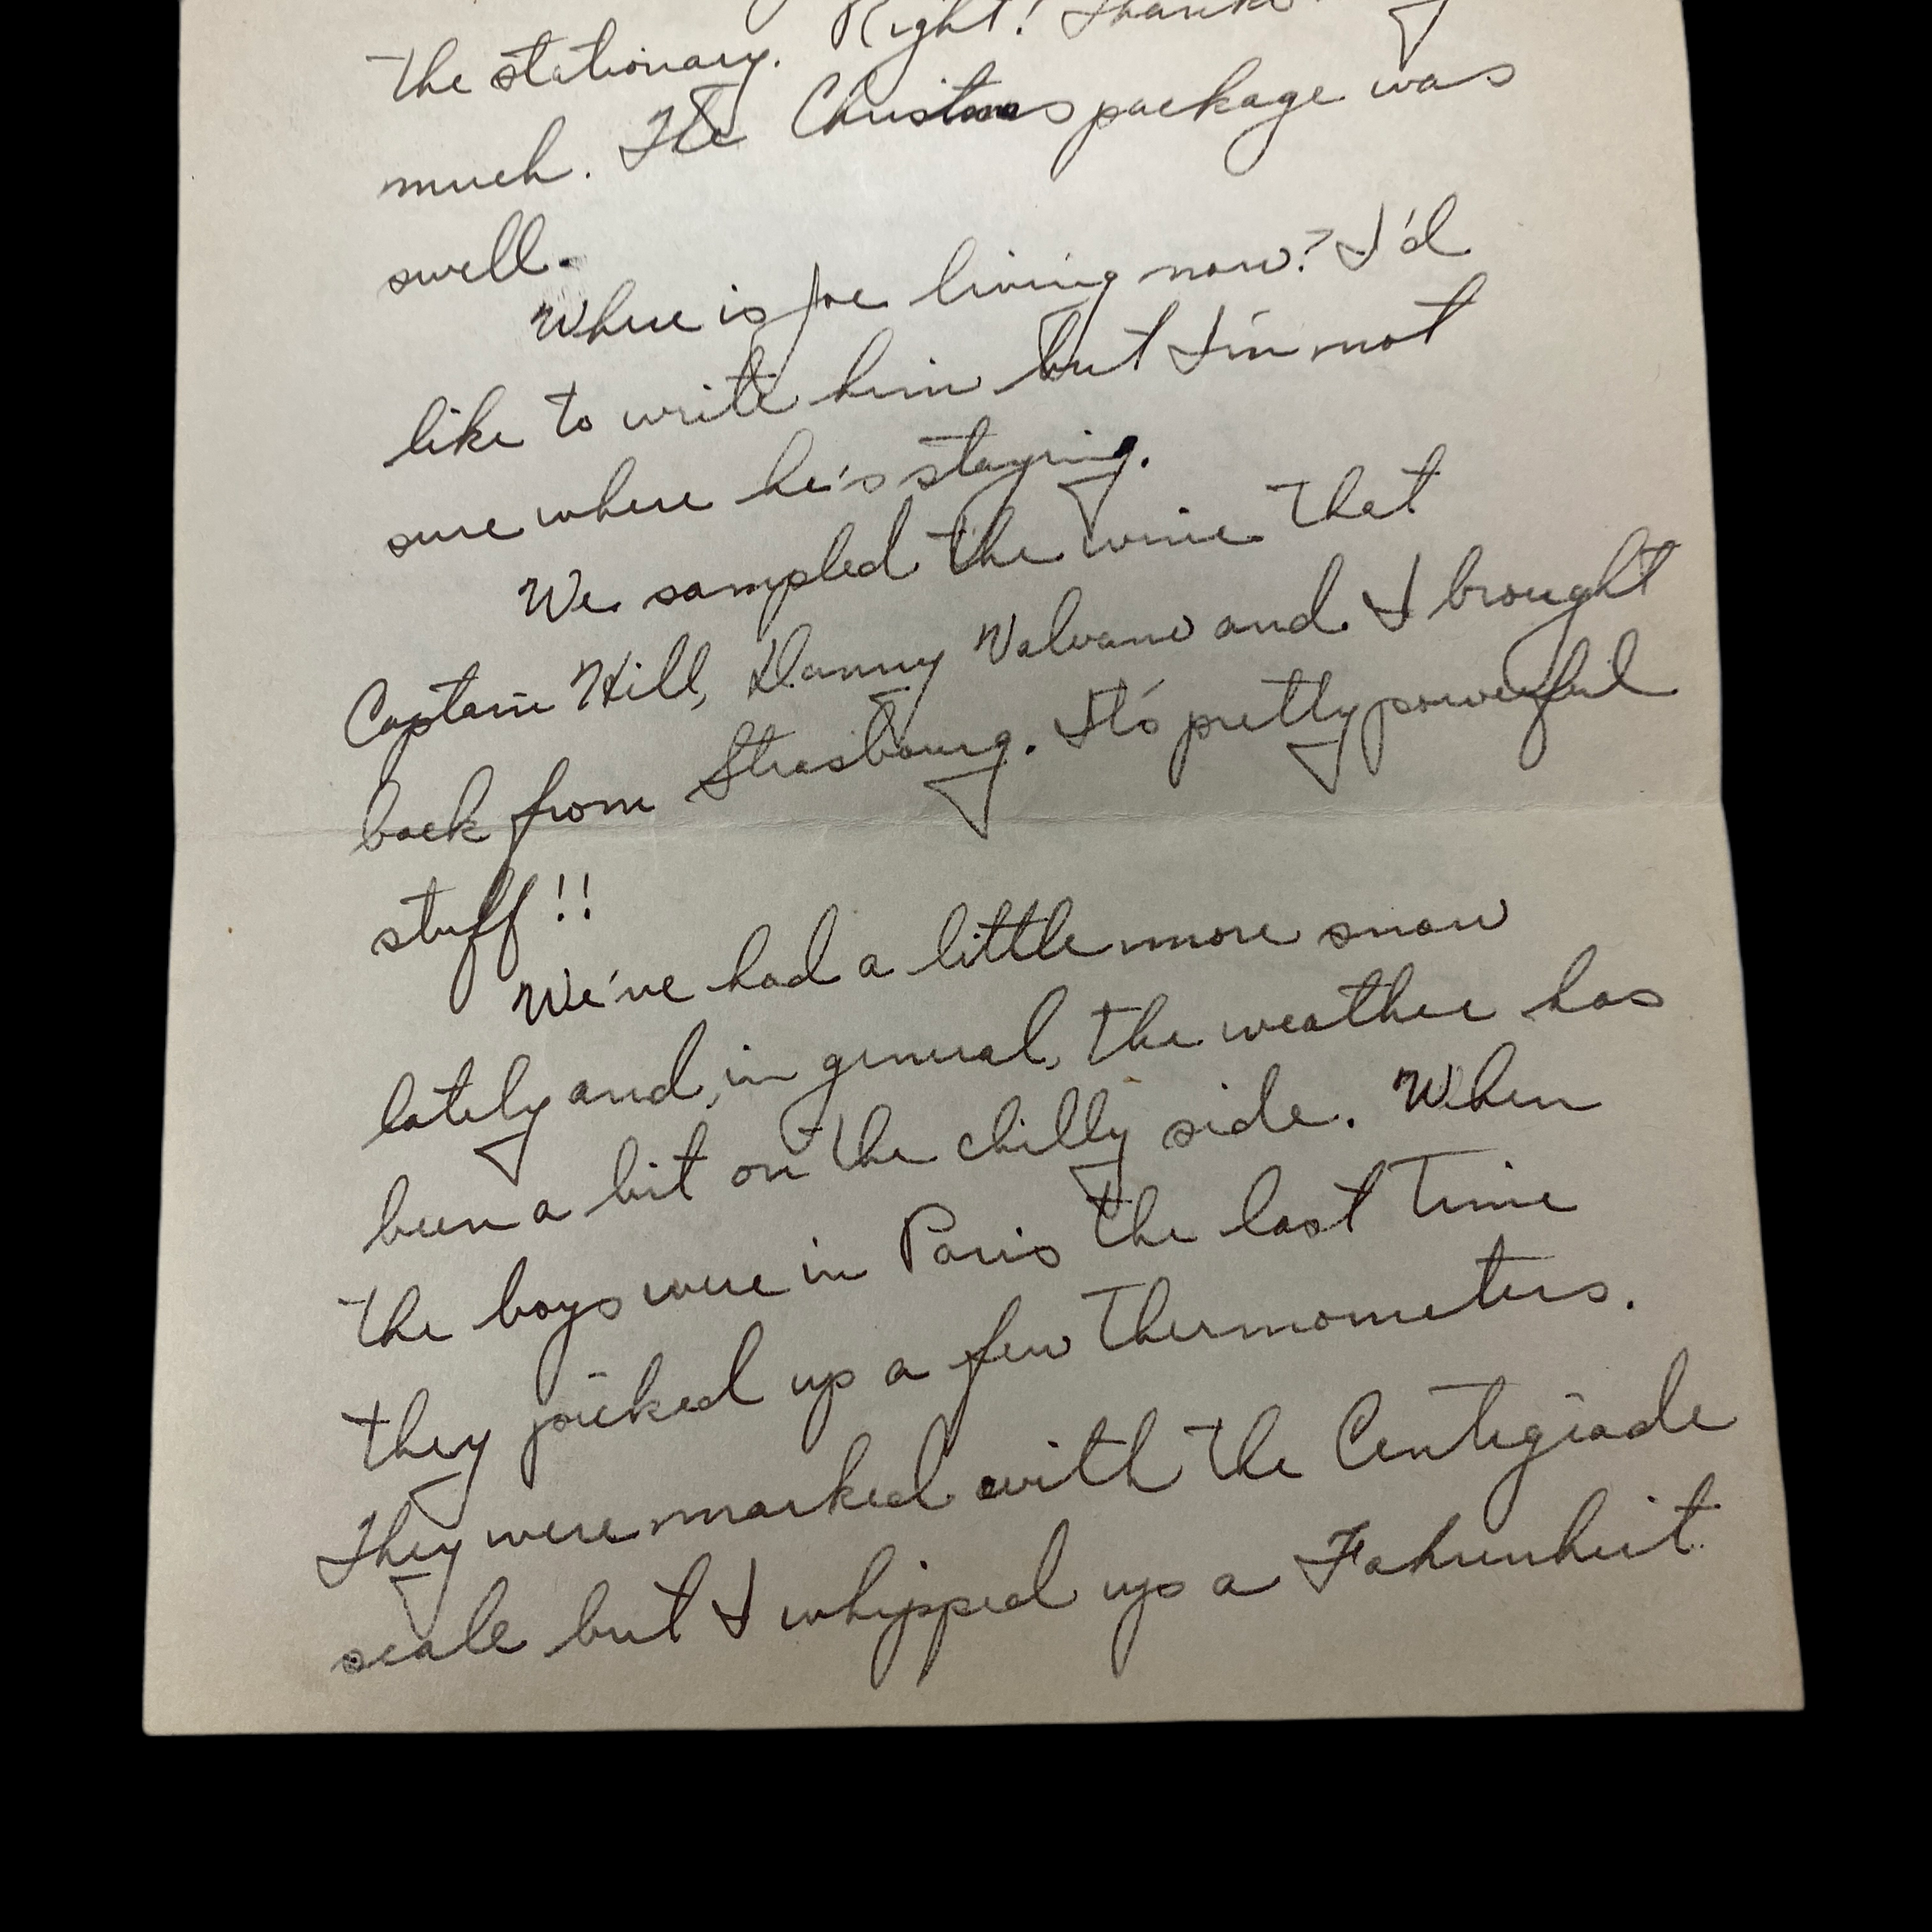 the stationary. Right! Thanks
much. The Christmas package was
swell.
Where is Joe living now? I'd
like to write him but I'm not
sure where he's staying.
We sampled the wine that
Captain Hill, Danny Valvano and I brought
back from Strasbourg. It's pretty powerful
stuff!!
We've had a little more snow
lately and, in general, the weather has
been a bit on the chilly side. When
the boys were in Paris the last time
they picked up a few thermometers.
They were marked with the Centigrade
scale but I whipped up a Fahrenheit